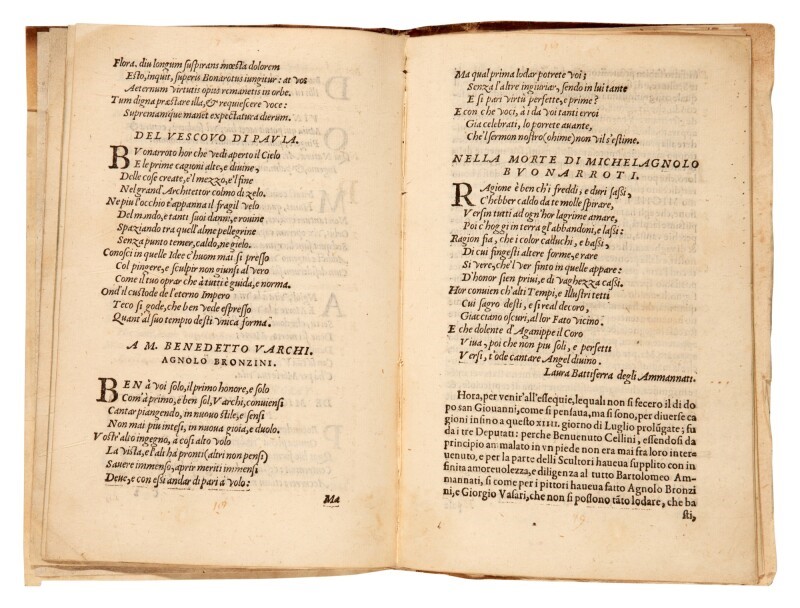 Flora, diu longum suspirans mœsta dolorem
Esto, inquit, superis Bonarotus iungitur: at vos
Aeternum virtutis opus remanetis in orbe.
Tum digna præstare illa, & requiescere voce:
Supremamque manet expectatura dierum.
DEL VESCOVO DI PAVIA.
BVonarroto hor che vedi aperto il Cielo
E le prime cagioni alte, e diuine,
Delle cose create, e'l mezzo, e'l fine
Nel grand'Architettor colmo di zelo.
Ne piu l'occhio t'appanna il fragil velo
Del mondo, e tanti suoi danni, e rouine
Spaziando tra quell'alme pellegrine
Senza punto temer, caldo, ne gielo.
Conosci in quelle Idee c'huom mai si presso
Col pingere, e sculpir non giunsi al vero
Come il tuo oprar che à tutti è guida, e norma.
Ond'il custode de l'eterno Impero
Teco si gode, che ben vede espresso
Quant'al suo tempio desti vnica forma.
A M. BENEDETTO VARCHI.
AGNOLO BRONZINI.
BEN à voi solo, il primo honore, e solo
Com'à primo, e ben sol, Varchi, conuiensi
Cantar piangendo, in nuouo stile, e sensi
Non mai piu intesi, in nuoua gioia, e duolo.
Vostr'alto ingegno, à cosi alto volo
La vista, e l'ali hà pronti (altri non pensi)
Sauere immenso, aprir meriti immensi
Deue, e con essi andar di pari à volo:
Ma
Ma qual prima lodar potrete voi;
Senza l'altre ingiuriar, sendo in lui tante
E si pari virtù perfette, e prime?
E con che voci, à i da voi tanti erroi
Gia celebrati, lo porrete auante,
Che'l sermon nostro (ohime) non vil s'estime.
NELLA MORTE DI MICHELAGNOLO
BVONARROTI.
RAgione è ben ch'i freddi, e duri sassi,
C'hebber caldo da te molle spirare,
Versin tutti ad ogn'hor lagrime amare,
Poi c'hoggi in terra gl'abbandoni, e lassi:
Ragion fia, che i color caduchi, e bassi,
Di cui fingesti altere forme, e rare
Si vere, che'l ver finto in quelle appare:
D'honor sien priui, e di vaghezza cassi.
Hor conuien ch'alti Tempi, e Illustri tetti
Cui sagro desti, e si real decoro,
Giacciano oscuri, al lor Fato vicino.
E che dolente d'Aganippe il Coro
Viua, poi che non piu soli, e perfetti
Versi, t'ode cantare Angel diuino.
Laura Battiferra degli Ammannati.
Hora, per venir'all'essequie, lequali non si fecero il di do
po san Giouanni, come si pensaua, ma si sono, per diuerse ca
gioni infino a questo XIIII. giorno di Luglio prolũgate; su
da i tre Deputati: perche Benuenuto Cellini, essendosi da
principio ammalato in vn piede non era mai fra loro inter=
uenuto, e per la parte delli Scultori haueua supplito con in
finita amoreuolezza, e diligenza al tutto Bartolomeo Am-
mannati, si come per i pittori haueua fatto Agnolo Bronzi
ni, e Giorgio Vasari, che non si possono tãto lodare, che ba
sti,